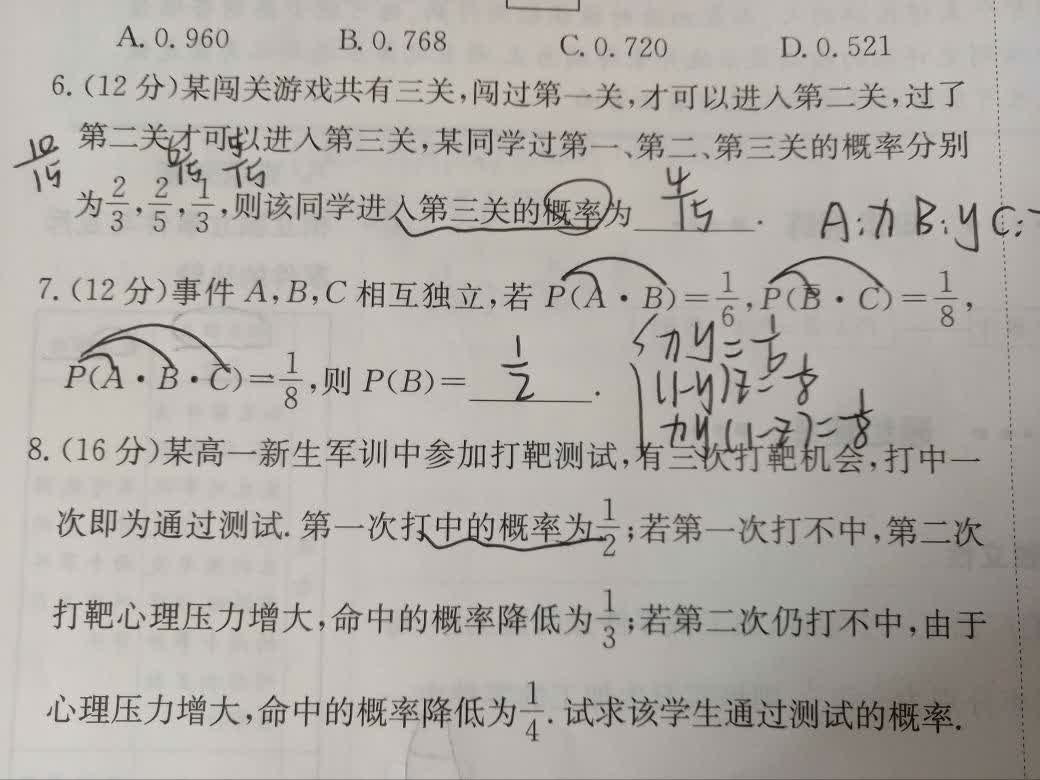 A. 0.960 B. 0.768 C. 0.720 D. 0.521
6. (12 分)某闯关游戏共有三关,闯过第一关,才可以进入第二关,过了
第二关才可以进入第三关,某同学过第一、第二、第三关的概率分别
10/15 6/15 5/15
为2/3,2/5,1/3,则该同学进入第三关的概率为 4/15 . A:x B:y C:
7. (12 分)事件 A,B,C 相互独立,若 P(A·B)=1/6,P(B̅·C)=1/8,
P(A·B·C̅)=1/8,则 P(B)= 1/2 .
xy=1/6
(1-y)z=1/8
xy(1-z)=1/8
8. (16 分)某高一新生军训中参加打靶测试,有三次打靶机会,打中一
次即为通过测试. 第一次打中的概率为1/2;若第一次打不中,第二次
打靶心理压力增大,命中的概率降低为1/3;若第二次仍打不中,由于
心理压力增大,命中的概率降低为1/4. 试求该学生通过测试的概率.